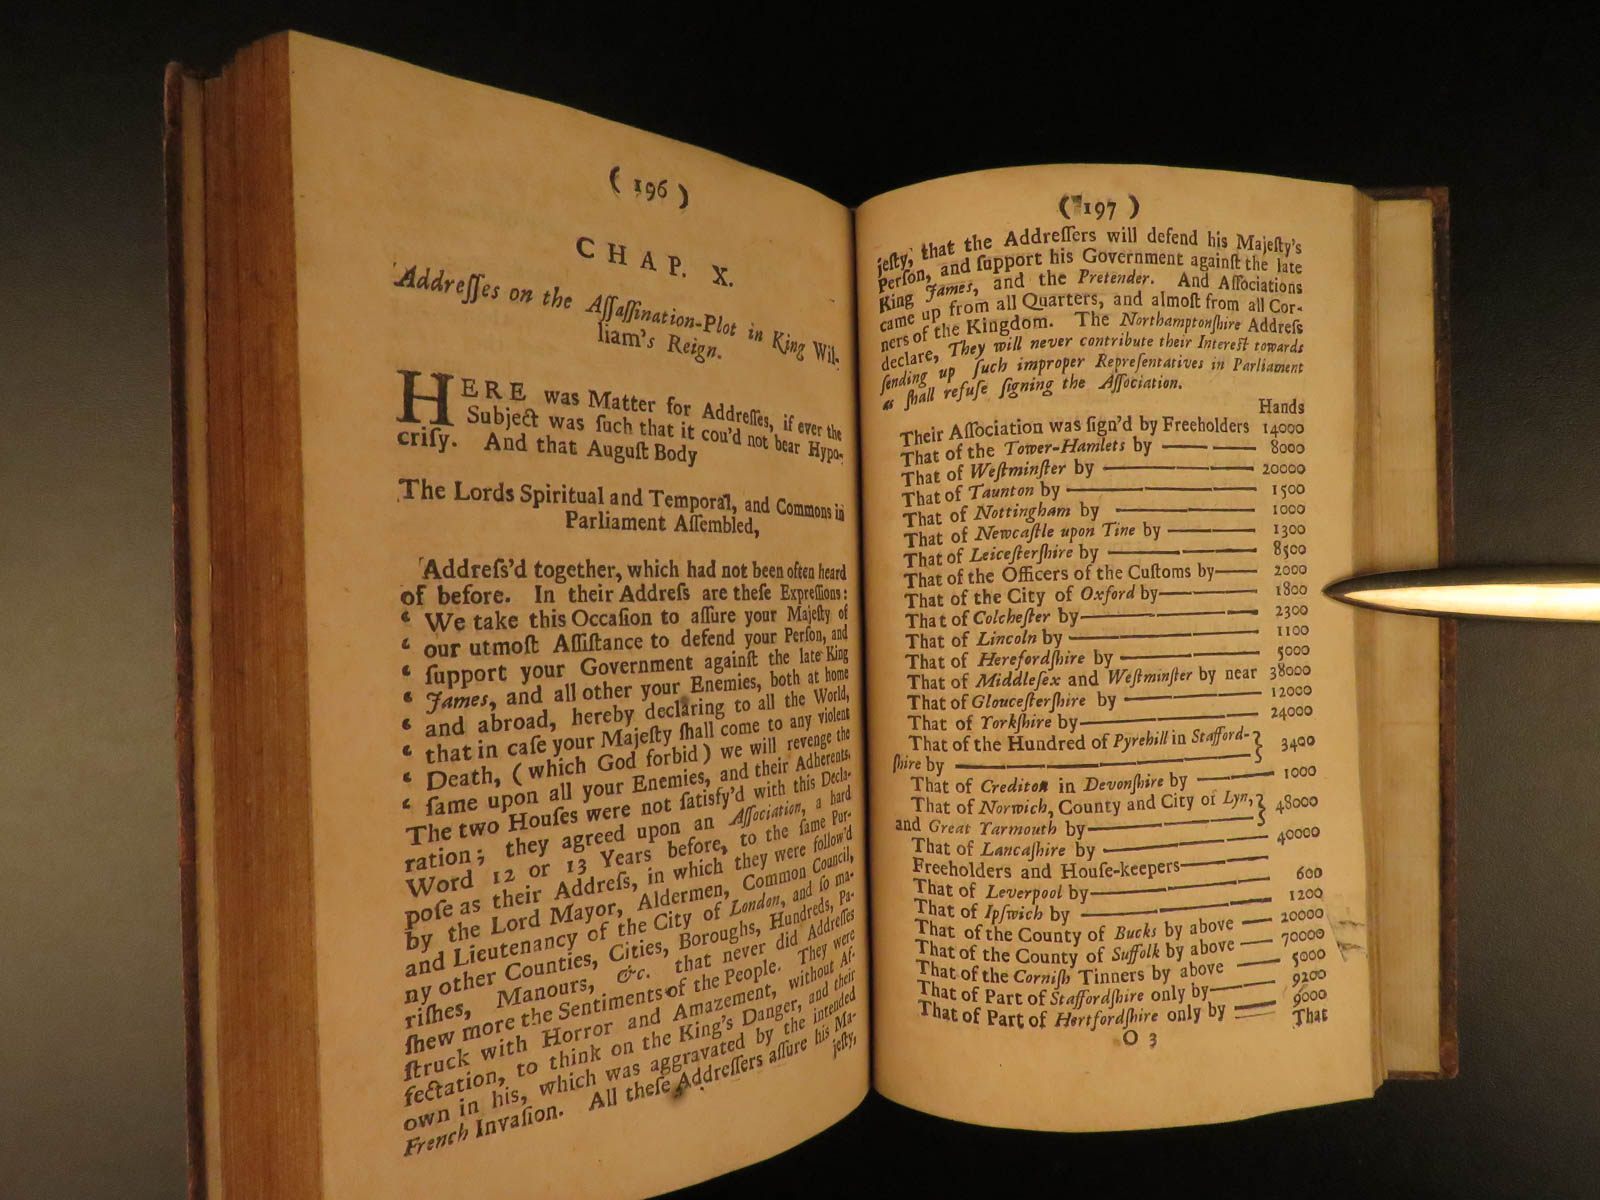 ( 196 )
CHAP. X.
Addreſſes on the Aſſaſſination-Plot in King Wil-
liam's Reign.
HERE was Matter for Addreſſes, if ever the
Subject was ſuch that it cou'd not bear Hypo-
criſy. And that Auguſt Body
The Lords Spiritual and Temporal, and Commons in
Parliament Aſſembled,
Addreſs'd together, which had not been often heard
of before. In their Addreſs are theſe Expreſſions:
‘ We take this Occaſion to aſſure your Majeſty of
‘ our utmoſt Aſſiſtance to defend your Perſon, and
‘ ſupport your Government againſt the late King
‘ James, and all other your Enemies, both at home
‘ and abroad, hereby declaring to all the World,
‘ that in caſe your Majeſty ſhall come to any violent
‘ Death, (which God forbid) we will revenge the
‘ ſame upon all your Enemies, and their Adherents.
The two Houſes were not ſatisfy'd with this Decla-
ration; they agreed upon an Aſſociation, a hard
Word 12 or 13 Years before, to the ſame Pur-
poſe as their Addreſs, in which they were follow'd
by the Lord Mayor, Aldermen, Common Council,
and Lieutenancy of the City of London, and ſo ma-
ny other Counties, Cities, Boroughs, Hundreds, Pa-
riſhes, Manours, &c. that never did Addreſſes
ſhew more the Sentiments of the People. They were
ſtruck with Horror and Amazement, without Af-
fectation, to think on the King's Danger, and their
own in his, which was aggravated by the intended
French Invaſion. All theſe Addreſſers aſſure his Ma-
jeſty,
( 197 )
jeſty, that the Addreſſers will defend his Majeſty's
Perſon, and ſupport his Government againſt the late
King James, and the Pretender. And Aſſociations
came up from all Quarters, and almoſt from all Cor-
ners of the Kingdom. The Northamptonſhire Addreſs
declare, They will never contribute their Intereſt towards
ſending up ſuch improper Repreſentatives in Parliament
as ſhall refuſe ſigning the Aſſociation.
Hands
Their Aſſociation was ſign'd by Freeholders 14000
That of the Tower-Hamlets by —— 8000
That of Weſtminſter by —— 20000
That of Taunton by —— 1500
That of Nottingham by —— 1000
That of Newcaſtle upon Tine by —— 1300
That of Leiceſterſhire by —— 8500
That of the Officers of the Cuſtoms by —— 2000
That of the City of Oxford by —— 1800
That of Colcheſter by —— 2300
That of Lincoln by —— 1100
That of Herefordſhire by —— 5000
That of Middleſex and Weſtminſter by near 38000
That of Glouceſterſhire by —— 12000
That of Yorkſhire by —— 24000
That of the Hundred of Pyrehill in Stafford-
ſhire by —— } 3400
That of Crediton in Devonſhire by —— 1000
That of Norwich, County and City of Lyn,
and Great Yarmouth by —— } 48000
That of Lancaſhire by —— 40000
Freeholders and Houſe-keepers ——
That of Leverpool by —— 600
That of Ipſwich by —— 1200
That of the County of Bucks by above —— 20000
That of the County of Suffolk by above —— 70000
That of the Corniſh Tinners by above —— 5000
That of Part of Staffordſhire only by —— 9200
That of Part of Hertfordſhire only by —— 9000
O 3 That